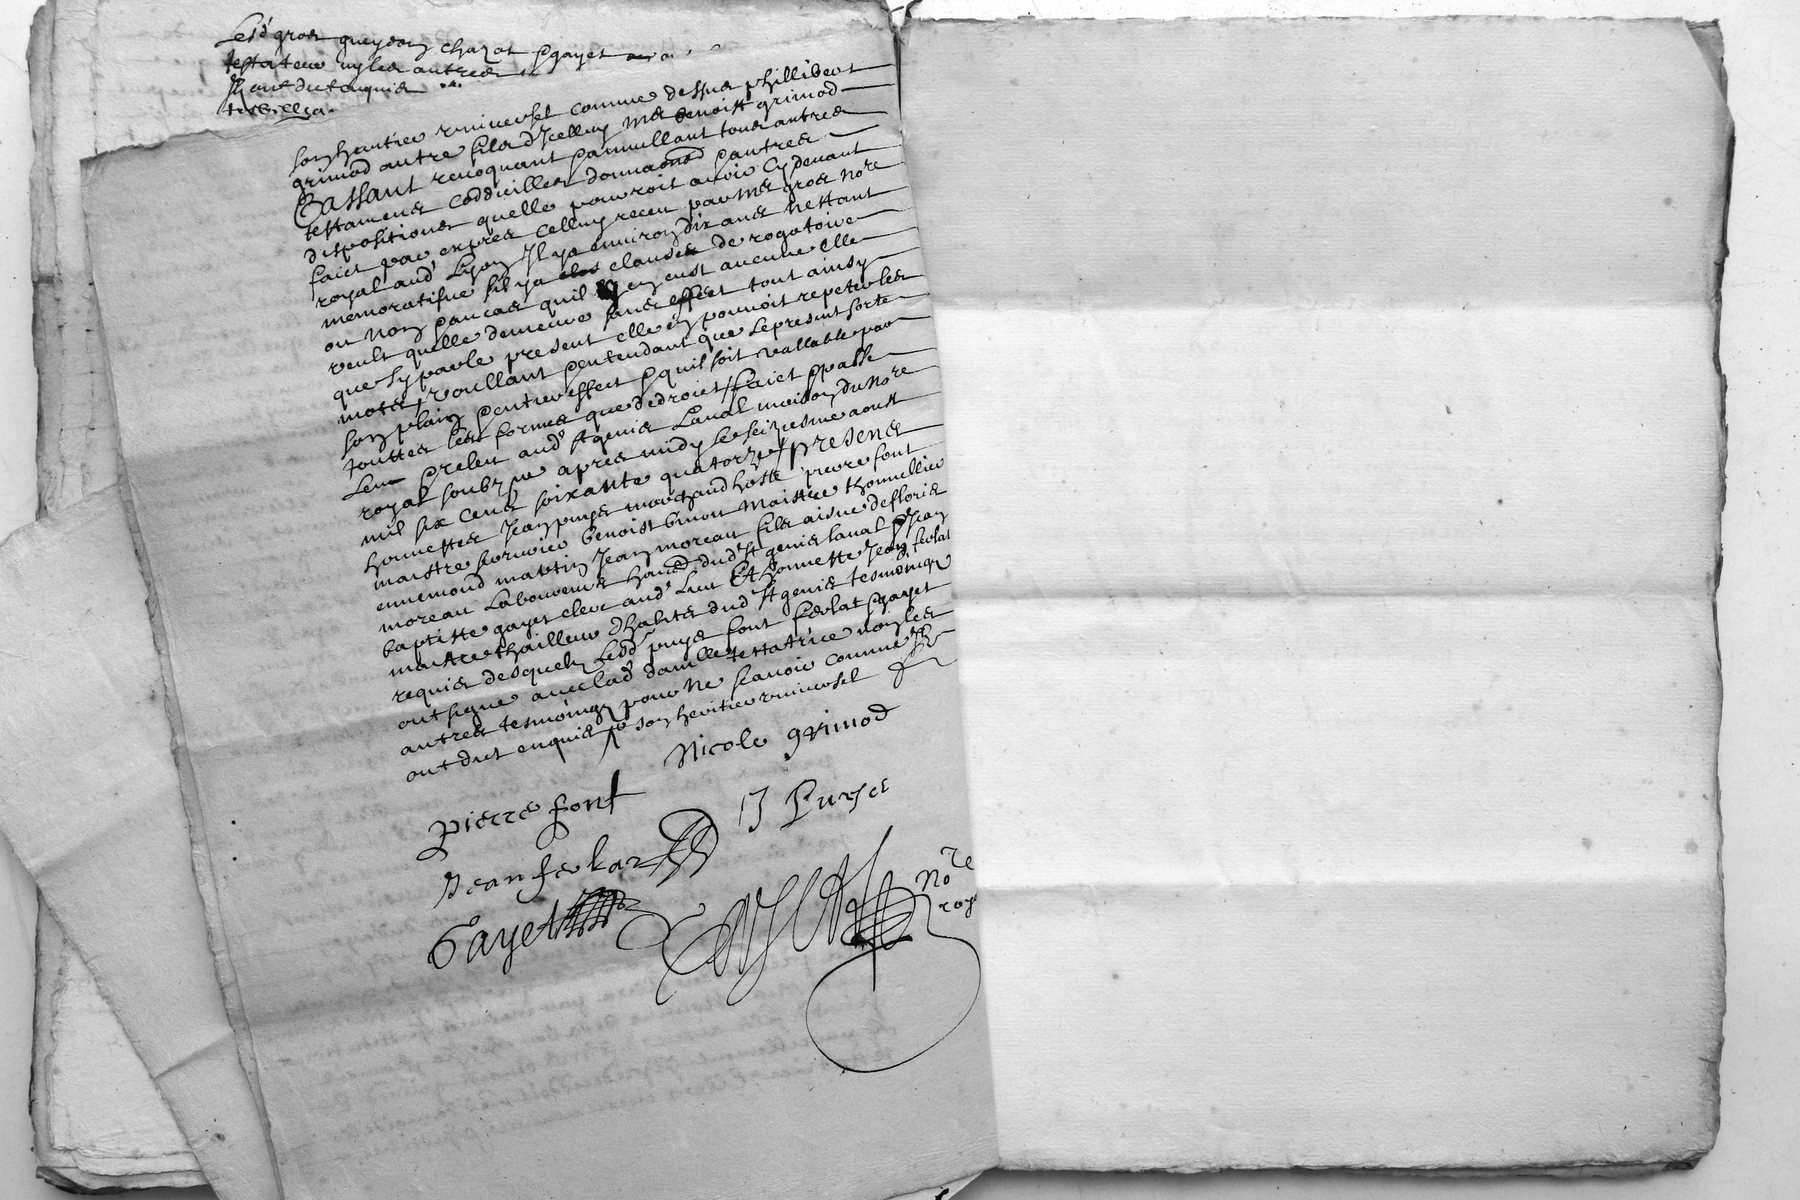 Lesd gros gueydon chazot & gayet
testateur ny les autres
Ilz ont dict enquis
son heritier universel comme dessus phillibert
grimod autre filz d'Icelluy mre benoist grimod
Cassant revoquant & annullant tous autres
testamens coddicilles donnaons & autres
dispositions quelle pourroit avoir cy devant
faict par expres celluy receu par me gros nore
royal aud Lyon Il y a environ dix ans nestant
memoratifve sil y a clauses de rogatoire
ou non & au cas quil y en eust aucune elle
veult quelle demeure sans effect tout ainsy
que sy par le present elle en pouvoit repeter les
motz voullant & entendant que le present sorte
son plain & entier effect & quil soit vallable par
touttes les formes que de droict / faict & passe
leu & releu aud St genis Laval maison du nore
royal soubz ne apres midy le seiziesme aoust
mil six cens soixante quatorze / presens
honnestes Jean puys marchand hoste pierre font
maistre benoist maistre thonnellier
ennemond martin Jean moreau filz aisne de floris
moreau Laboureurs dud St genis laval & Jean
baptiste gayet clerc aud Lieu Et honneste Jean ferlat
maistre thailleur d'habitz dud St genis tesmoings
requis desquelz lesd puys font ferlat & gayet
ont signe avec lad damlle testatrice non les
autres tesmoings pour ne scavoir comme Ilz
ont dict enquis son heritier universel
Nicole grimod
pierre font
J Puys
Jean ferlat
Gayet
nore
roy